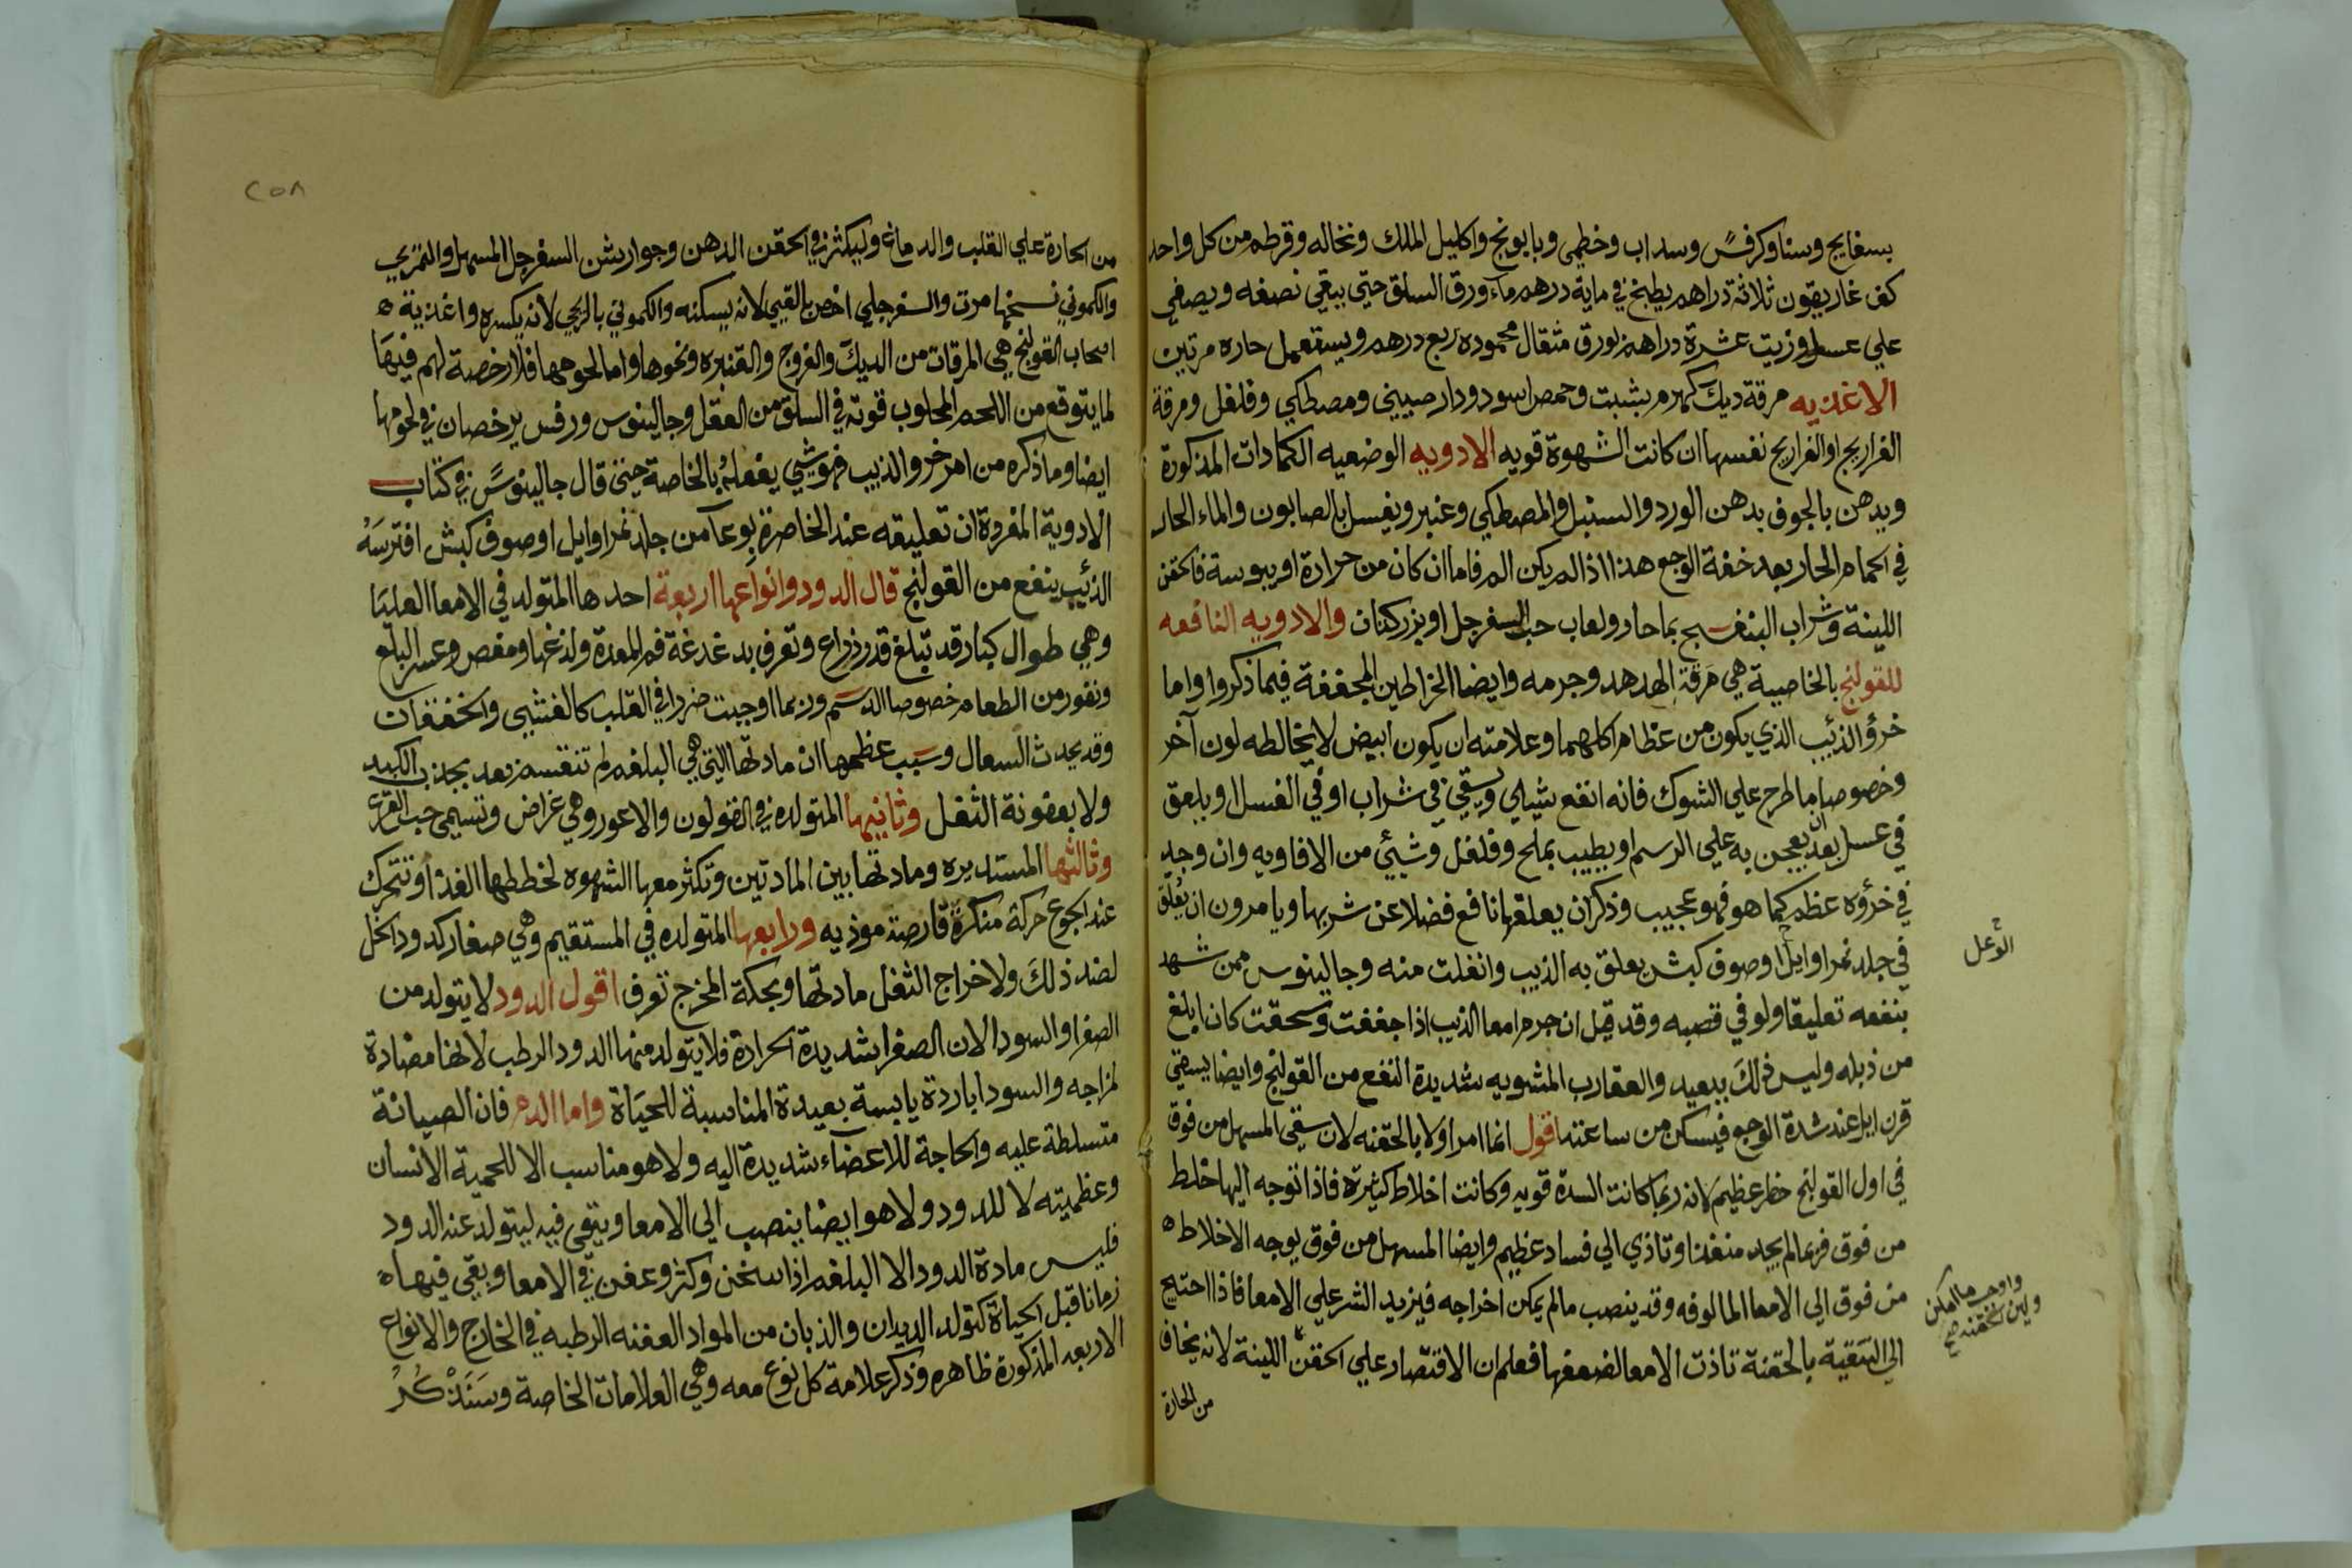 بسفايج وسنا وكرفس وسداب وخطمى وبابونج واكليل الملك ونخاله وقرطم من كل واحد
كف غاريقون ثلاثة دراهم يطبخ في ماية درهم مآء ورق السلق حتي يبقي نصفه ويصفي
علي عسل وزيت عشرة دراهم بورق مثقال محموده ربع درهم ويستعمل حاره مرتين
الاغذيه مرقة ديك هرم بشبت وحمص اسود ودار صيني ومصطكي وفلفل ومرقة
الفراريج او الفراريج نفسها ان كانت الشهوة قويه الادويه الوضعيه الكمادات المذكورة
ويدهن بالجوف بدهن الورد والسنبل والمصطكي وعنبر ويغسل بالصابون والماء الحار
في الحمام الحار بعد خفة الوجع هذا اذا لم يكن الم فاما ان كان من حرارة او يبوسة فالحقن
اللينة وشراب البنفسج بما حار ولعاب حب السفرجل او بزر كتان والادويه النافعه
للقولنج بالخاصية هي مرقة الهدهد وجرمه وايضا الخراطين المجففة فيما ذكروا واما
خرؤ الذئيب الذي يكون من عظام اكلهما وعلامته ان يكون ابيض لا يخالطه لون آخر
وخصوصا ما طرح علي الشوك فانه انفع شيلي ويسقي في شراب او في العسل او يلعق
في عسل بعد ان يعجن به علي الرسم او يطيب بملح وفلفل وشيئي من الافاويه وان وجد
في خرؤه عظم كما هو فهو عجيب وذكر ان يعلقها نافع فضلا عن شربها ويامرون ان يعلق
في جلد نمر او ايل او صوف كبش يعلق به الذيب وانفلت منه وجالينوس ممن شهد
بنفعه تعليقا ولو في قصبه وقد قيل ان جرم امعا الذيب اذا جففت وسحقت كان ابلغ
من ذبله وليس ذلك ببعيد والعقارب المشويه شديدة النفع من القولنج وايضا يسقي
قرن ايل عند شدة الوجع فيسكن من ساعته اقول انما امر اولا بالحقنه لان سقي المسهل من فوق
في اول القولنج خطر عظيم لانه ربما كانت السدة قويه وكانت اخلاط كثيرة فاذا توجه اليها خلط
من فوق فربما لم يجد منفذا وتاذي الي فساد عظيم وايضا المسهل من فوق يوجه الاخلاط ٥
من فوق الي الامعا المالوفه وقد ينصب مالم يمكن اخراجه فيزيد الشر علي الامعا فاذا احتيج
الي التنقية بالحقنة تاذت الامعا لضعفها فعلم ان الاقتصار علي الحقن اللينة لانه يخاف
من الحارة
الوعل
ولين الحقنه صح
٢٥٨
من الحارة علي القلب والدماغ وليكثر في الحقن الدهن وجوارشن السفرجل المسهل والتمري
والكموني نسخها مرت والسفرجلي اخص بالقيي لانه يسكنه والكموني بالريحي لانه يكسره واغذية ٥
اصحاب القولنج هي المرقات من الديك والفروج والقنبره ونحوها واما لحومها فلا رخصة لهم فيها
لما يتوقع من اللحم المحلوب قوته في السلق من العقل وجالينوس ورفس يرخصان في لحومها
ايضا وما ذكره من امر خرو الذيب فهو شيي يفعله بالخاصة حتي قال جالينوس في كتاب
الادوية المفردة ان تعليقه عند الخاصرة بوعآ من جلد نمر او ايل او صوف كبش افترسه
الذئيب ينفع من القولنج قال الدود وانواعها اربعة احدها المتولد في الامعا العليا
وهي طوال كبار قد تبلغ قدر ذراع وتعرف بدغدغة فم المعدة ولذغها ومغص وعسر البلع
ونفور من الطعام خصوصا الدسم وربما اوجبت ضررا في القلب كالغشيي والخفقان
وقد يحدث السعال وسبب عظمها ان مادتها التي هي البلغم لم تنقسم بعد بجذب الكبد
ولا بعفونة الثفل وثانيها المتولده في القولون والاعور وهي عراض وتسمي حب القرع
وثالثها المستديره ومادتها بين المادتين وتكثر معها الشهوه لخطفها الغذا وتتحرك
عند الجوع حركة منكرة قارصة موذيه ورابعها المتولده في المستقيم وهي صغار كدود الخل
لضد ذلك ولاخراج الثفل مادتها وبحكة المخرج تعرف اقول الدود لا يتولد من
الصفرا والسودا لان الصفرا شديدة الحرارة فلا يتولد منها الدود الرطب لانها مضادة
لمزاجه والسودا باردة يابسة بعيدة المناسبة للحياة واما الدم فان الصيانة
متسلطة عليه والحاجة للاعضاء شديدة اليه ولا هو مناسب الا للحمية الانسان
وعظميته لا للدود ولا هو ايضا ينصب الي الامعا ويبقي فيه ليتولد عنه الدود
فليس مادة الدود الا البلغم اذا سخن وكثر وعفن في الامعا وبقي فيها ٥
زمانا قبل الحياة كتولد الديدان والذبان من المواد العفنه الرطبه في الخارج والانواع
الاربعه المذكورة ظاهره وذكر علامة كل نوع معه وهي العلامات الخاصة وسنذكر